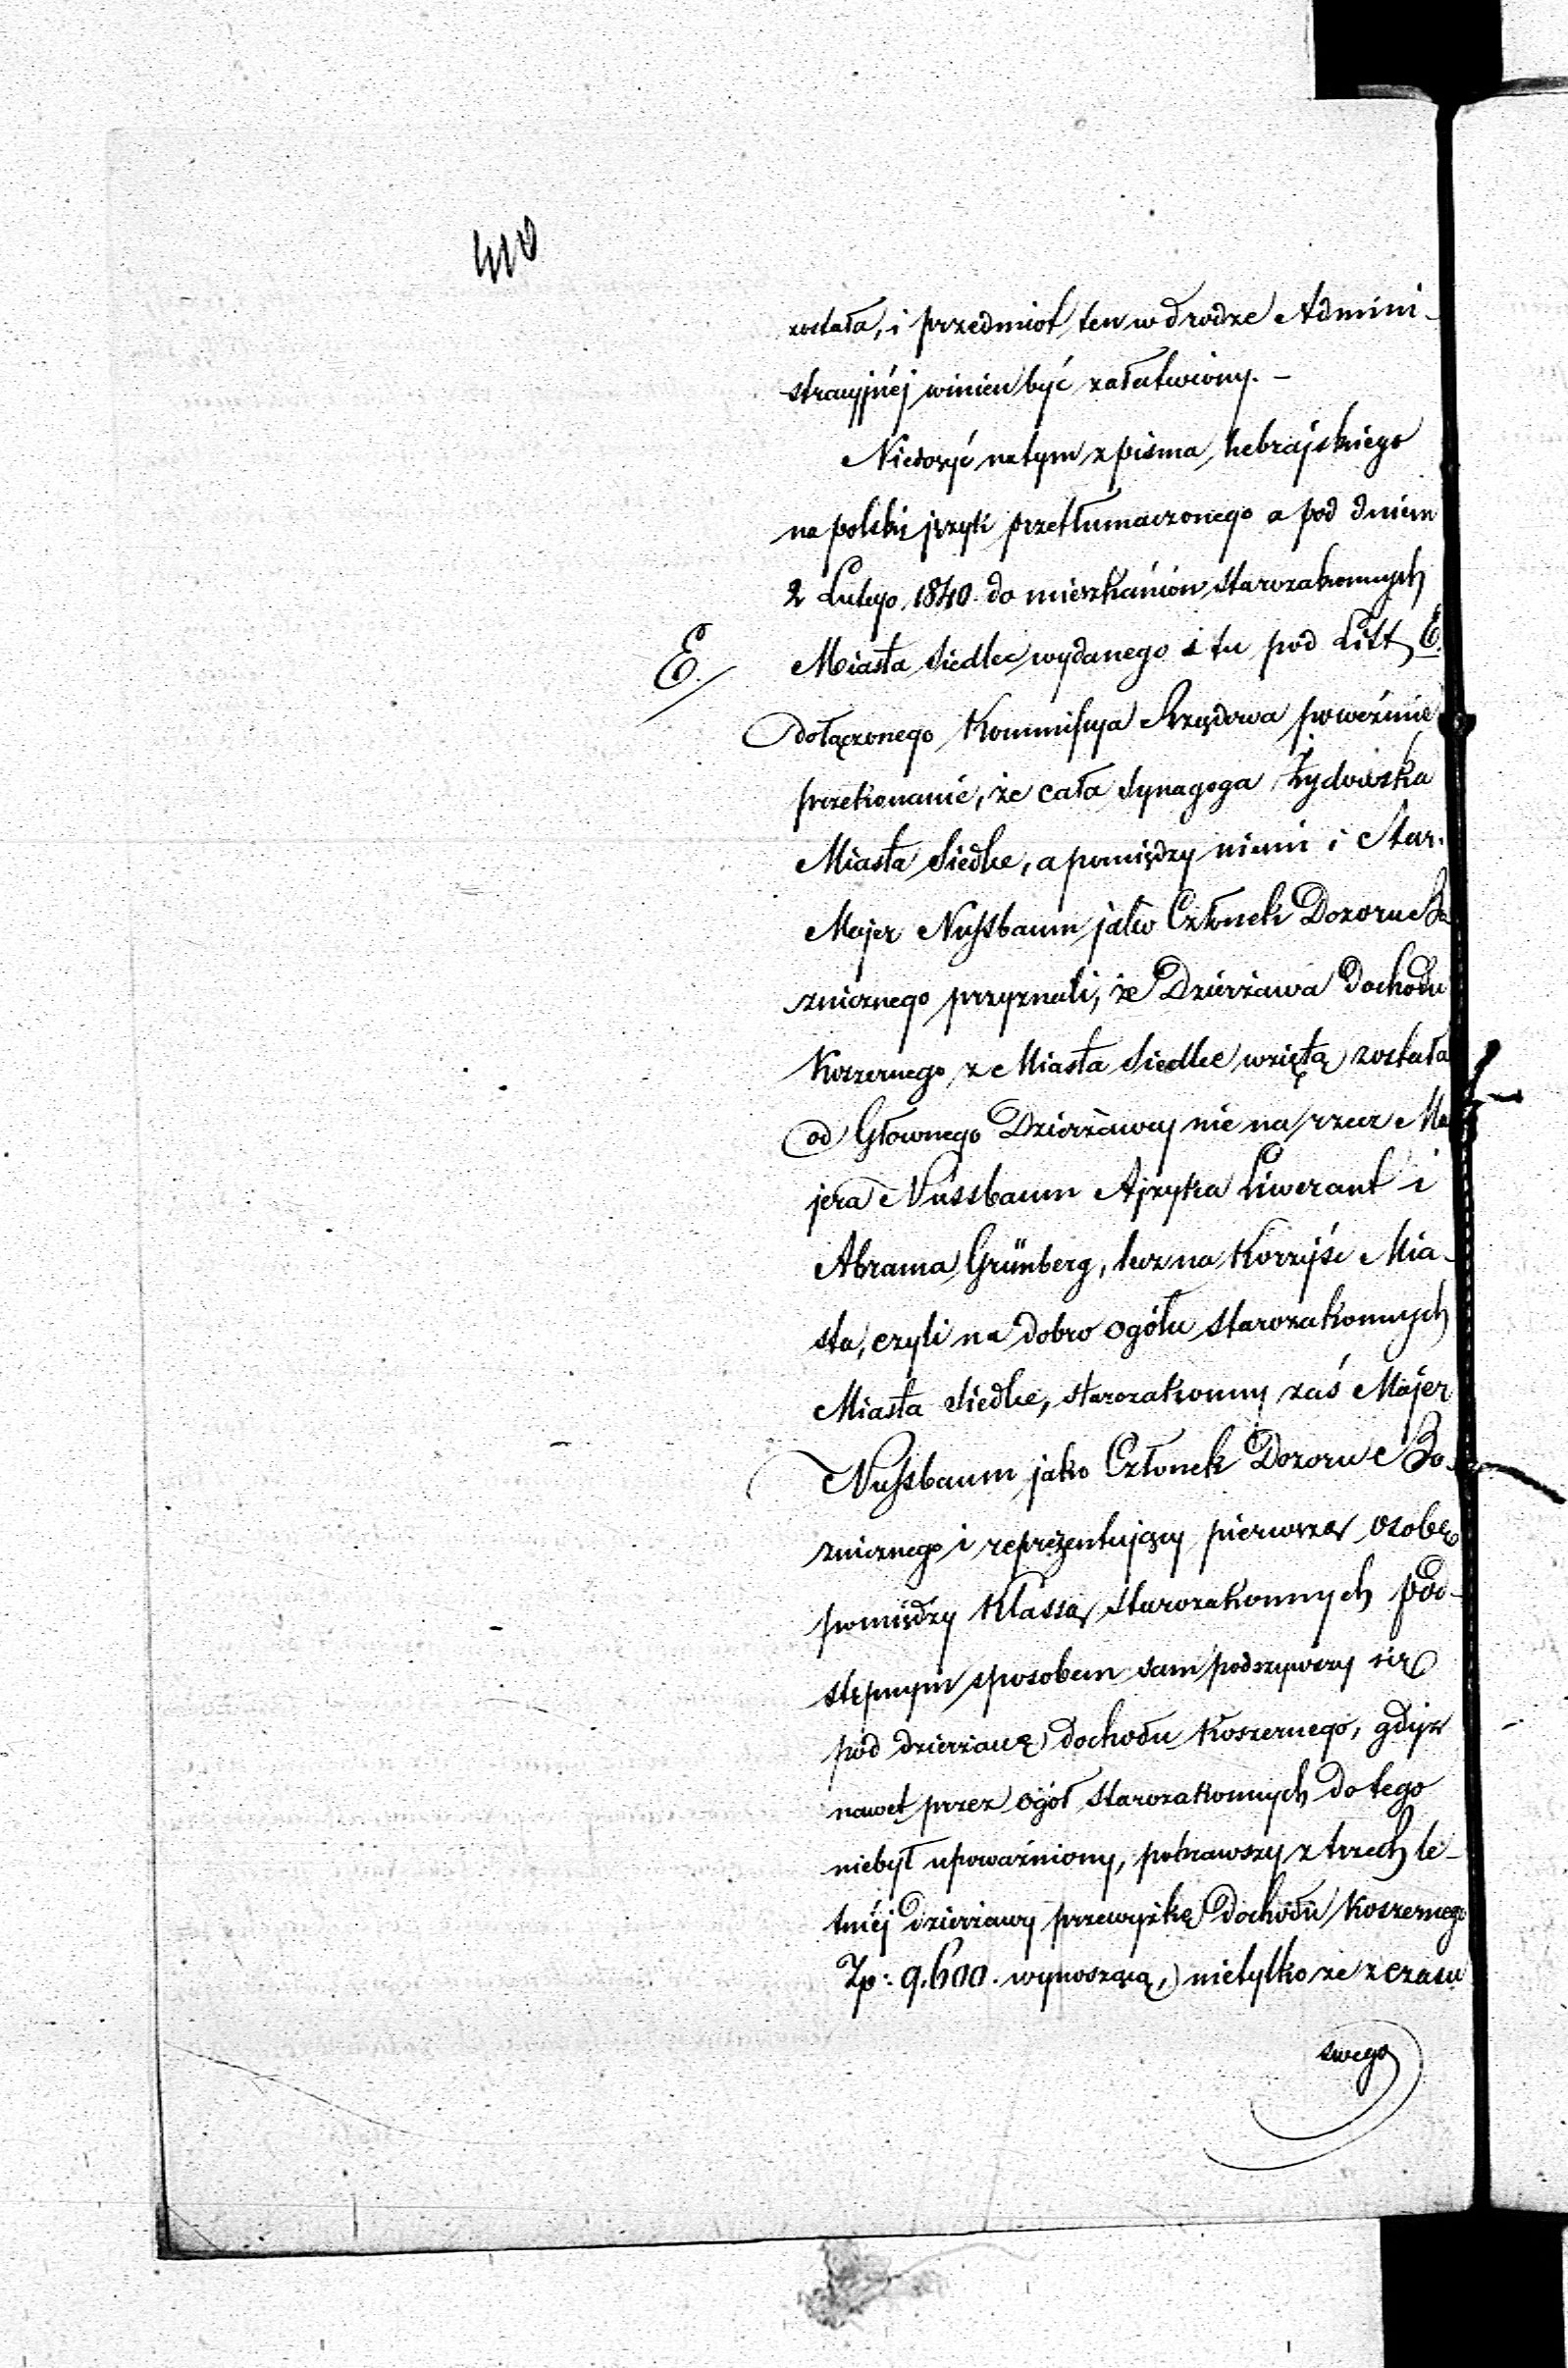 410
została, i przedmiot ten w drodze Admini-
stracyjnéj winien być załatwiony. -
Niedosyć natym z pisma hebrajskiego
na polski język przetłumaczonego a pod dniem
2 Lutego 1840 do mieszkańców starozakonnych
E./
Miasta Siedlec wydanego i tu pod Litt E.
dołączonego Kommissya Rządowa poweźmie
przekonanie, że cała Synagoga Żydowska
Miasta Siedlce, a pomiędzy niemi i Star.
Majer Nussbaum jako Członek Dozoru Bo
zniczego przyznali, że Dzierżawa Dochodu
Koszernego z Miasta Siedlce wziętą została
od Głownego Dzierżawcy nie na rzecz Ma
jera Nussbaum Ajzyka Liwerant i
Abrama Grünberg, lecz na Korzyść Mia-
sta, czyli na dobro ogółu starozakonnych
Miasta Siedlce, starozakonny zaś Majer
Nussbaum jako Członek Dozoru Bo-
znicznego i reprezentujący pierwszą osobę
pomiędzy Klassą starozakonnych pod-
stępnym sposobem sam podszywszy się
pod dzierżawę dochodu Koszernego, gdyż
nawet przez ogół starozakonnych do tego
niebył upoważniony, pobrawszy z trzech le-
tniéj dzierżawy przewyżkę Dochodu Koszernego
Zp: 9,600. wynoszącą, nietylko ze z czasu
swego